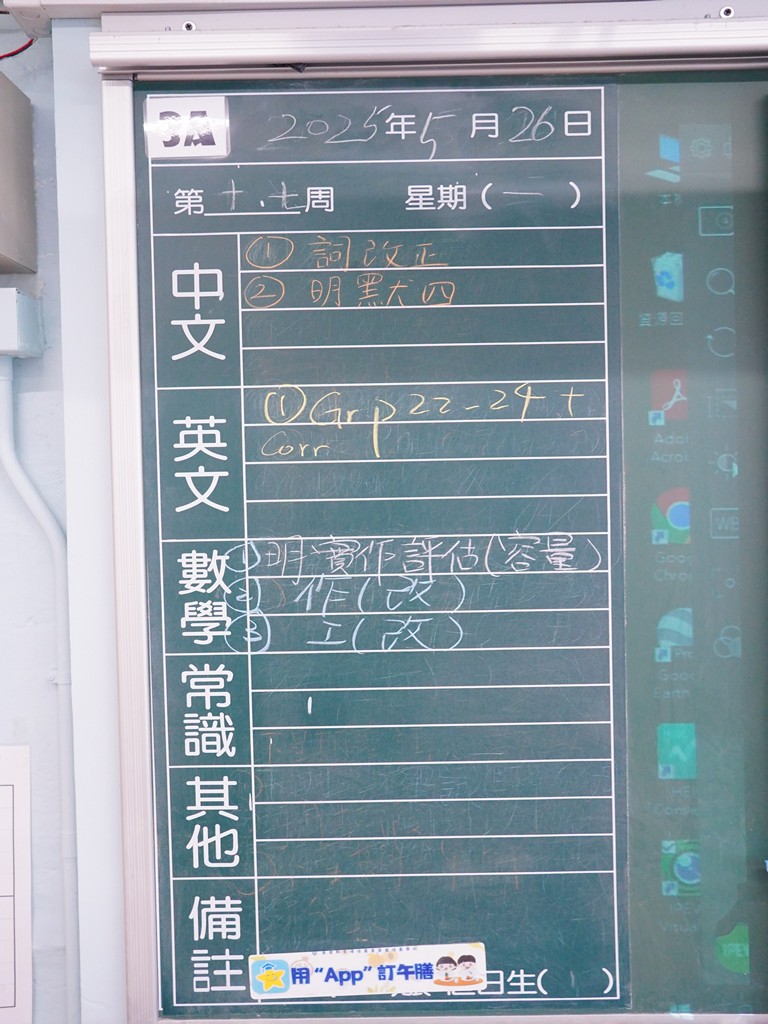 3A 2025年5月26日
第十七周 星期(一)
中文
① 詞改正
② 明默四
英文
① Gr p22-24 +
Corr
數學
① 明實作評估(容量)
② 作(改)
③ 工(改)
常識
其他
備註
用“App”訂午膳
日生( )
資源回
Adol
Acrol
Goo
Chro
Goo
Earth
WB